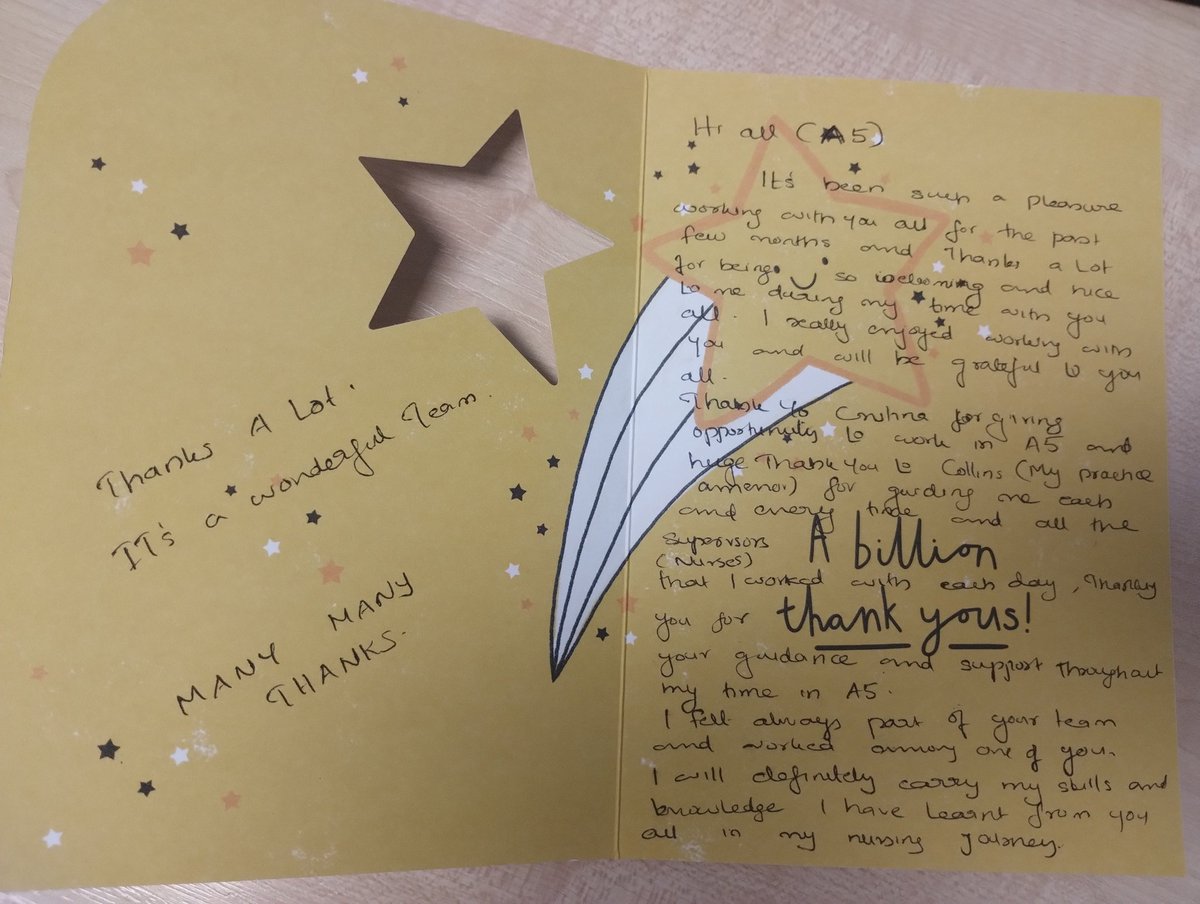 Thanks A Lot.
IT's a wonderful Team.
MANY MANY
THANKS.
Hi all (A5)
It's been such a pleasure
working with you all for the past
few months and Thanks a Lot
for being so welcoming and nice
to me during my time with you
all. I really enjoyed working with
you and will be grateful to you
all.
Thank Yo for giving
opportunity to work in A5 and
huge Thank You to Collins (My practice
) for guiding me each
and every time and all the
Supervisors
(Nurses)
A billion
that I worked with each day, Thanky
you for
thank yous!
your guidance and support Throughout
my time in A5.
I felt always part of your team
and worked among one of you.
I will definitely carry my skills and
knowledge I have learnt from you
all in my nursing Journey.